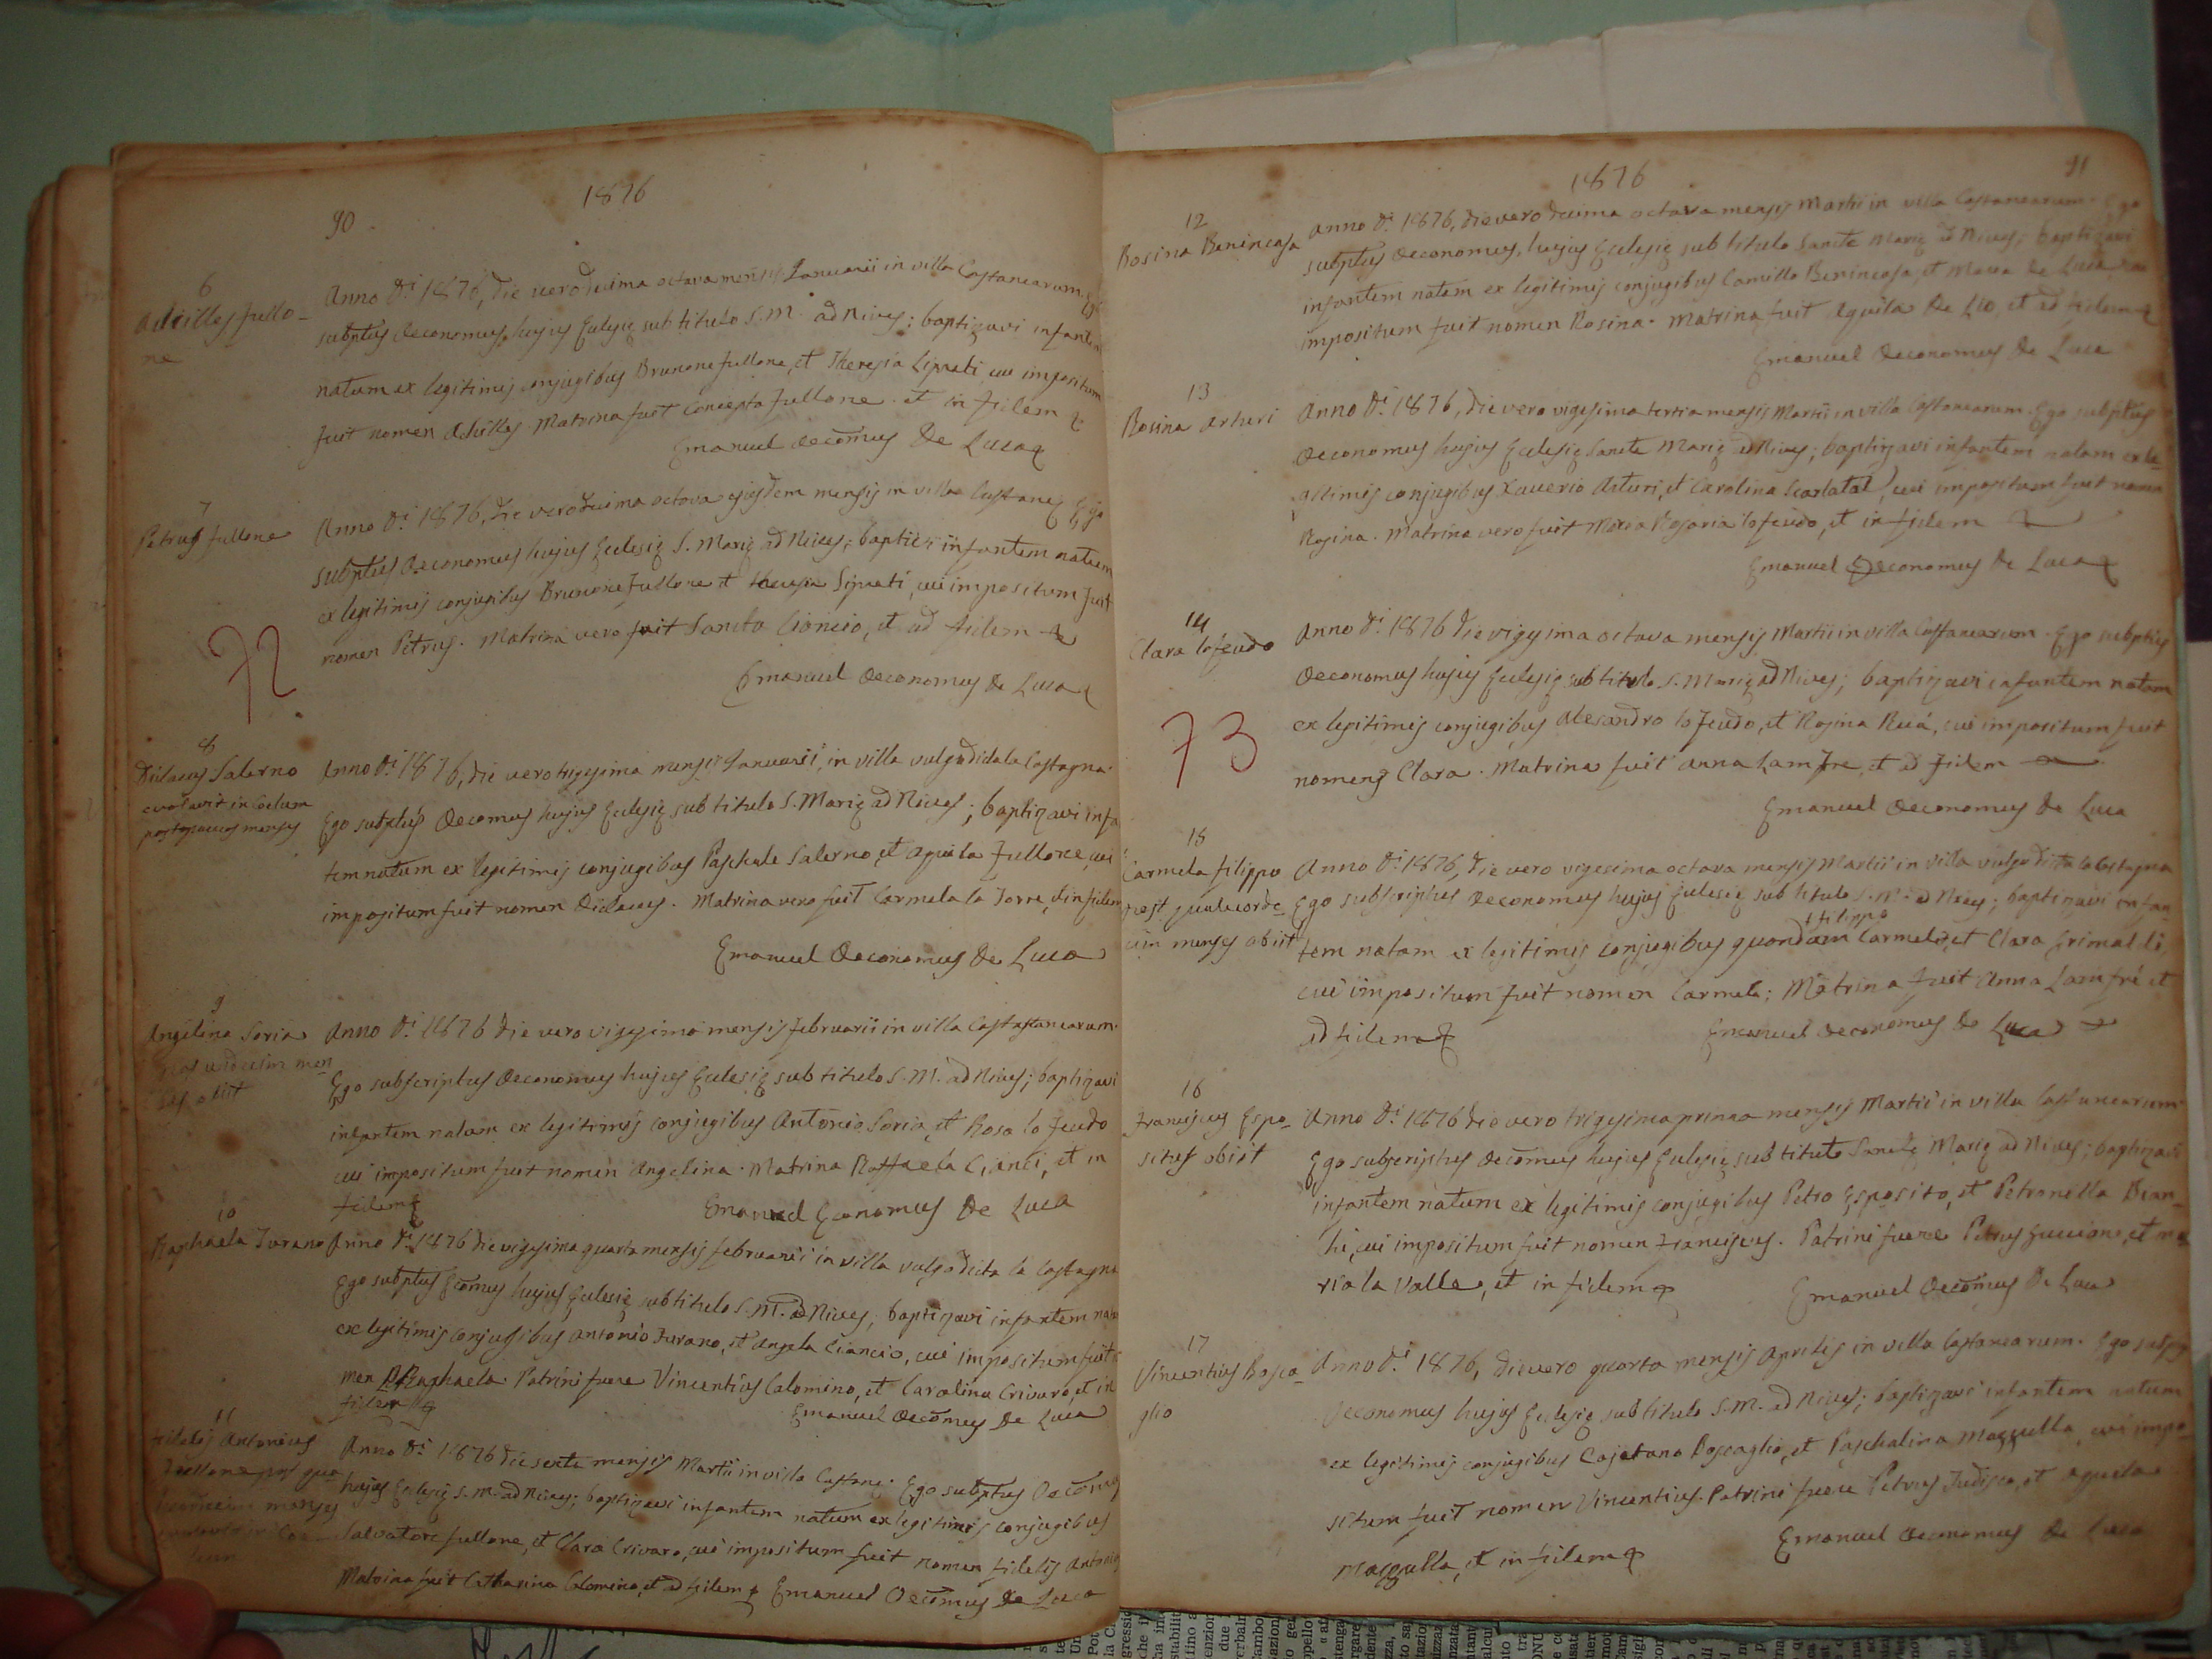 1876
90
6
Achilles Fullo-
ne
Anno Di 1876, die vero decima octava mensis Januarii in villa Castanearum Ego
subptus Oeconomus hujus Eclesię sub titulo S. M. ad Nives; baptizavi infantem
natum ex legitimis conjugibus Brunone Fullone, et Theresia Liprati cui impositum
fuit nomen Achilles Matrina fuit Concepta Fullone. et in fidem
Emanuel Oecomus De Luca
7
Petrus Fullone
Anno Di 1876, die vero decima octava ejusdem mensis in villa Castaneę Ego
subptus Oeconomus hujus Eclesię S. Marię ad Nives; baptizi infantem natum
ex legitimis conjugibus Brunone Fullone et Theresia Siprati, cui impositum fuit
nomen Petrus. Matrina vero fuit Sancta Ciancio, et ad fidem
Emanuel Oeconomus De Luca
72
8
Didacus Salerno
evolavit in Coelum
post paucos menses
Anno Di 1876, die vero trigesima mensis Januarii, in villa vulgo dicta la Castagna
Ego subptus Oecomus hujus Eclesię sub titulo S. Marię ad Nives; baptizavi infa
tem natum ex legitimis conjugibus Paschale Salerno, et Aquila Fullone, cui
impositum fuit nomen Didacus. Matrina vero fuit Carmela la Torre, et in fidem
Emanuel Oeconomus De Luca
9
Angelina Soria
post undecim men
ses obiit
Anno Di 1876 die vero vigesima mensis Februarii in villa Castastanearum.
Ego subscriptus Oeconomus hujus Eclesię sub titulo S. M. ad Nives; baptizavi
infantem natam ex legitimis conjugibus Antonio Soria, et Rosa lo Feudo
cui impositum fuit nomen Angelina. Matrina Raffaela Cianci, et in
fidem
Emanuel Economus De Luca
10
Raphaela Turano
Anno Di 1876 die vigesima quarta mensis Februarii in villa vulgo dicta la Castagna
Ego subptus Ecomus hujus Eclesię sub titulo S. M. ad Nives; baptizavi infantem natam
ex legitimis conjugibus Antonio Turano, et Angela Ciancio, cui impositum fuit
men Raphaela. Patrini fuere Vincentius Calomino, et Carolina Crivaro, et in
fidem
Emanuel Oecomus De Luca
11
Fidelis Antonius
Fullone post qua
menses
Anno Di 1876 die sexta mensis Martii in villa Castaneę. Ego subptus Oecomus
hujus Eclesię S. M. ad Nives; baptizavi infantem natum ex legitimis conjugibus
Salvatore Fullone, et Clara Crivaro, cui impositum fuit nomen Fidelis Antonio
Matrina fuit Catharina Calomino, et ad fidem Emanuel Oecomus De Luca
1876
91
12
Rosina Benincasa
Anno Di 1876, die vero decima octava mensis Martii in villa Castanearum. Ego
subptus Oeconomus, hujus Eclesię sub titulo Sancte Marię ad Nives; baptizavi
infantem natam ex legitimis conjugibus Camillo Benincasa, et Maria De Luca
impositum fuit nomen Rosina. Matrina fuit Aquila De Lio, et ad fidem
Emanuel Oeconomus De Luca
13
Rosina Arturi
Anno Di 1876, die vero vigesima tertia mensis Martii in villa Castanearum. Ego subptus
Oeconomus hujus Eclesię Sancte Marię ad Nives; baptizavi infantem natam ex le-
gitimis conjugibus Xaverio Arturi, et Carolina Scarlata, cui impositum fuit nomen
Rosina. Matrina vero fuit Maria Rosaria lo feudo, et in fidem
Emanuel Oeconomus De Luca
14
Clara lo feudo
Anno Di 1876 die vigesima octava mensis Martii in villa Castanearum. Ego subptus
Oeconomus hujus Eclesię sub titulo S. Marię ad Nives; baptizavi infantem natam
ex legitimis conjugibus Alesandro lo Feudo, et Rosina Ruá, cui impositum fuit
nomen Clara. Matrina fuit Anna Lamfre, et ad fidem
Emanuel Oeconomus De Luca
73
15
Carmela Filippo
post quatuorde-
cim menses obiit
Anno Di 1876, die vero vigesima octava mensis Martii in villa vulgo dicta la Castagna
Ego subscriptus Oeconomus hujus Eclesię sub titulo S. M. ad Nives; baptizavi infan-
Filippo
tem natam ex legitimis conjugibus quondam Carmelo, et Clara Grimaldi
cui impositum fuit nomen Carmela; Matrina fuit Anna Lamfré et
ad fidem
Emanuel Oeconomus De Luca
16
Franciscus Espo-
situs obiit
Anno Di 1876 die vero trigesima prima mensis Martii in villa Castanearum.
Ego subscriptus Oecomus hujus Eclesię sub titulo Sanctę Marię ad Nives; baptizavi
infantem natum ex legitimis conjugibus Petro Esposito, et Petronilla Bian-
chi, cui impositum fuit nomen Franciscus. Patrini fuere Petrus Guccione, et Ma
ria la Valle, et in fidem
Emanuel Oecomus De Luca
17
Vincentius Bosca-
glio
Anno Di 1876, die vero quarta mensis Aprilis in villa Castanearum. Ego subptus
Oeconomus hujus Eclesię sub titulo S. M. ad Nives; baptizavi infantem natum
ex legitimis conjugibus Cajetano Boscaglio, et Paschalina Mazzulla, cui impo-
situm fuit nomen Vincentius. Patrini fuere Petrus Fudisco, et Aquila
Mazzulla, et in fidem
Emanuel Oeconomus De Luca